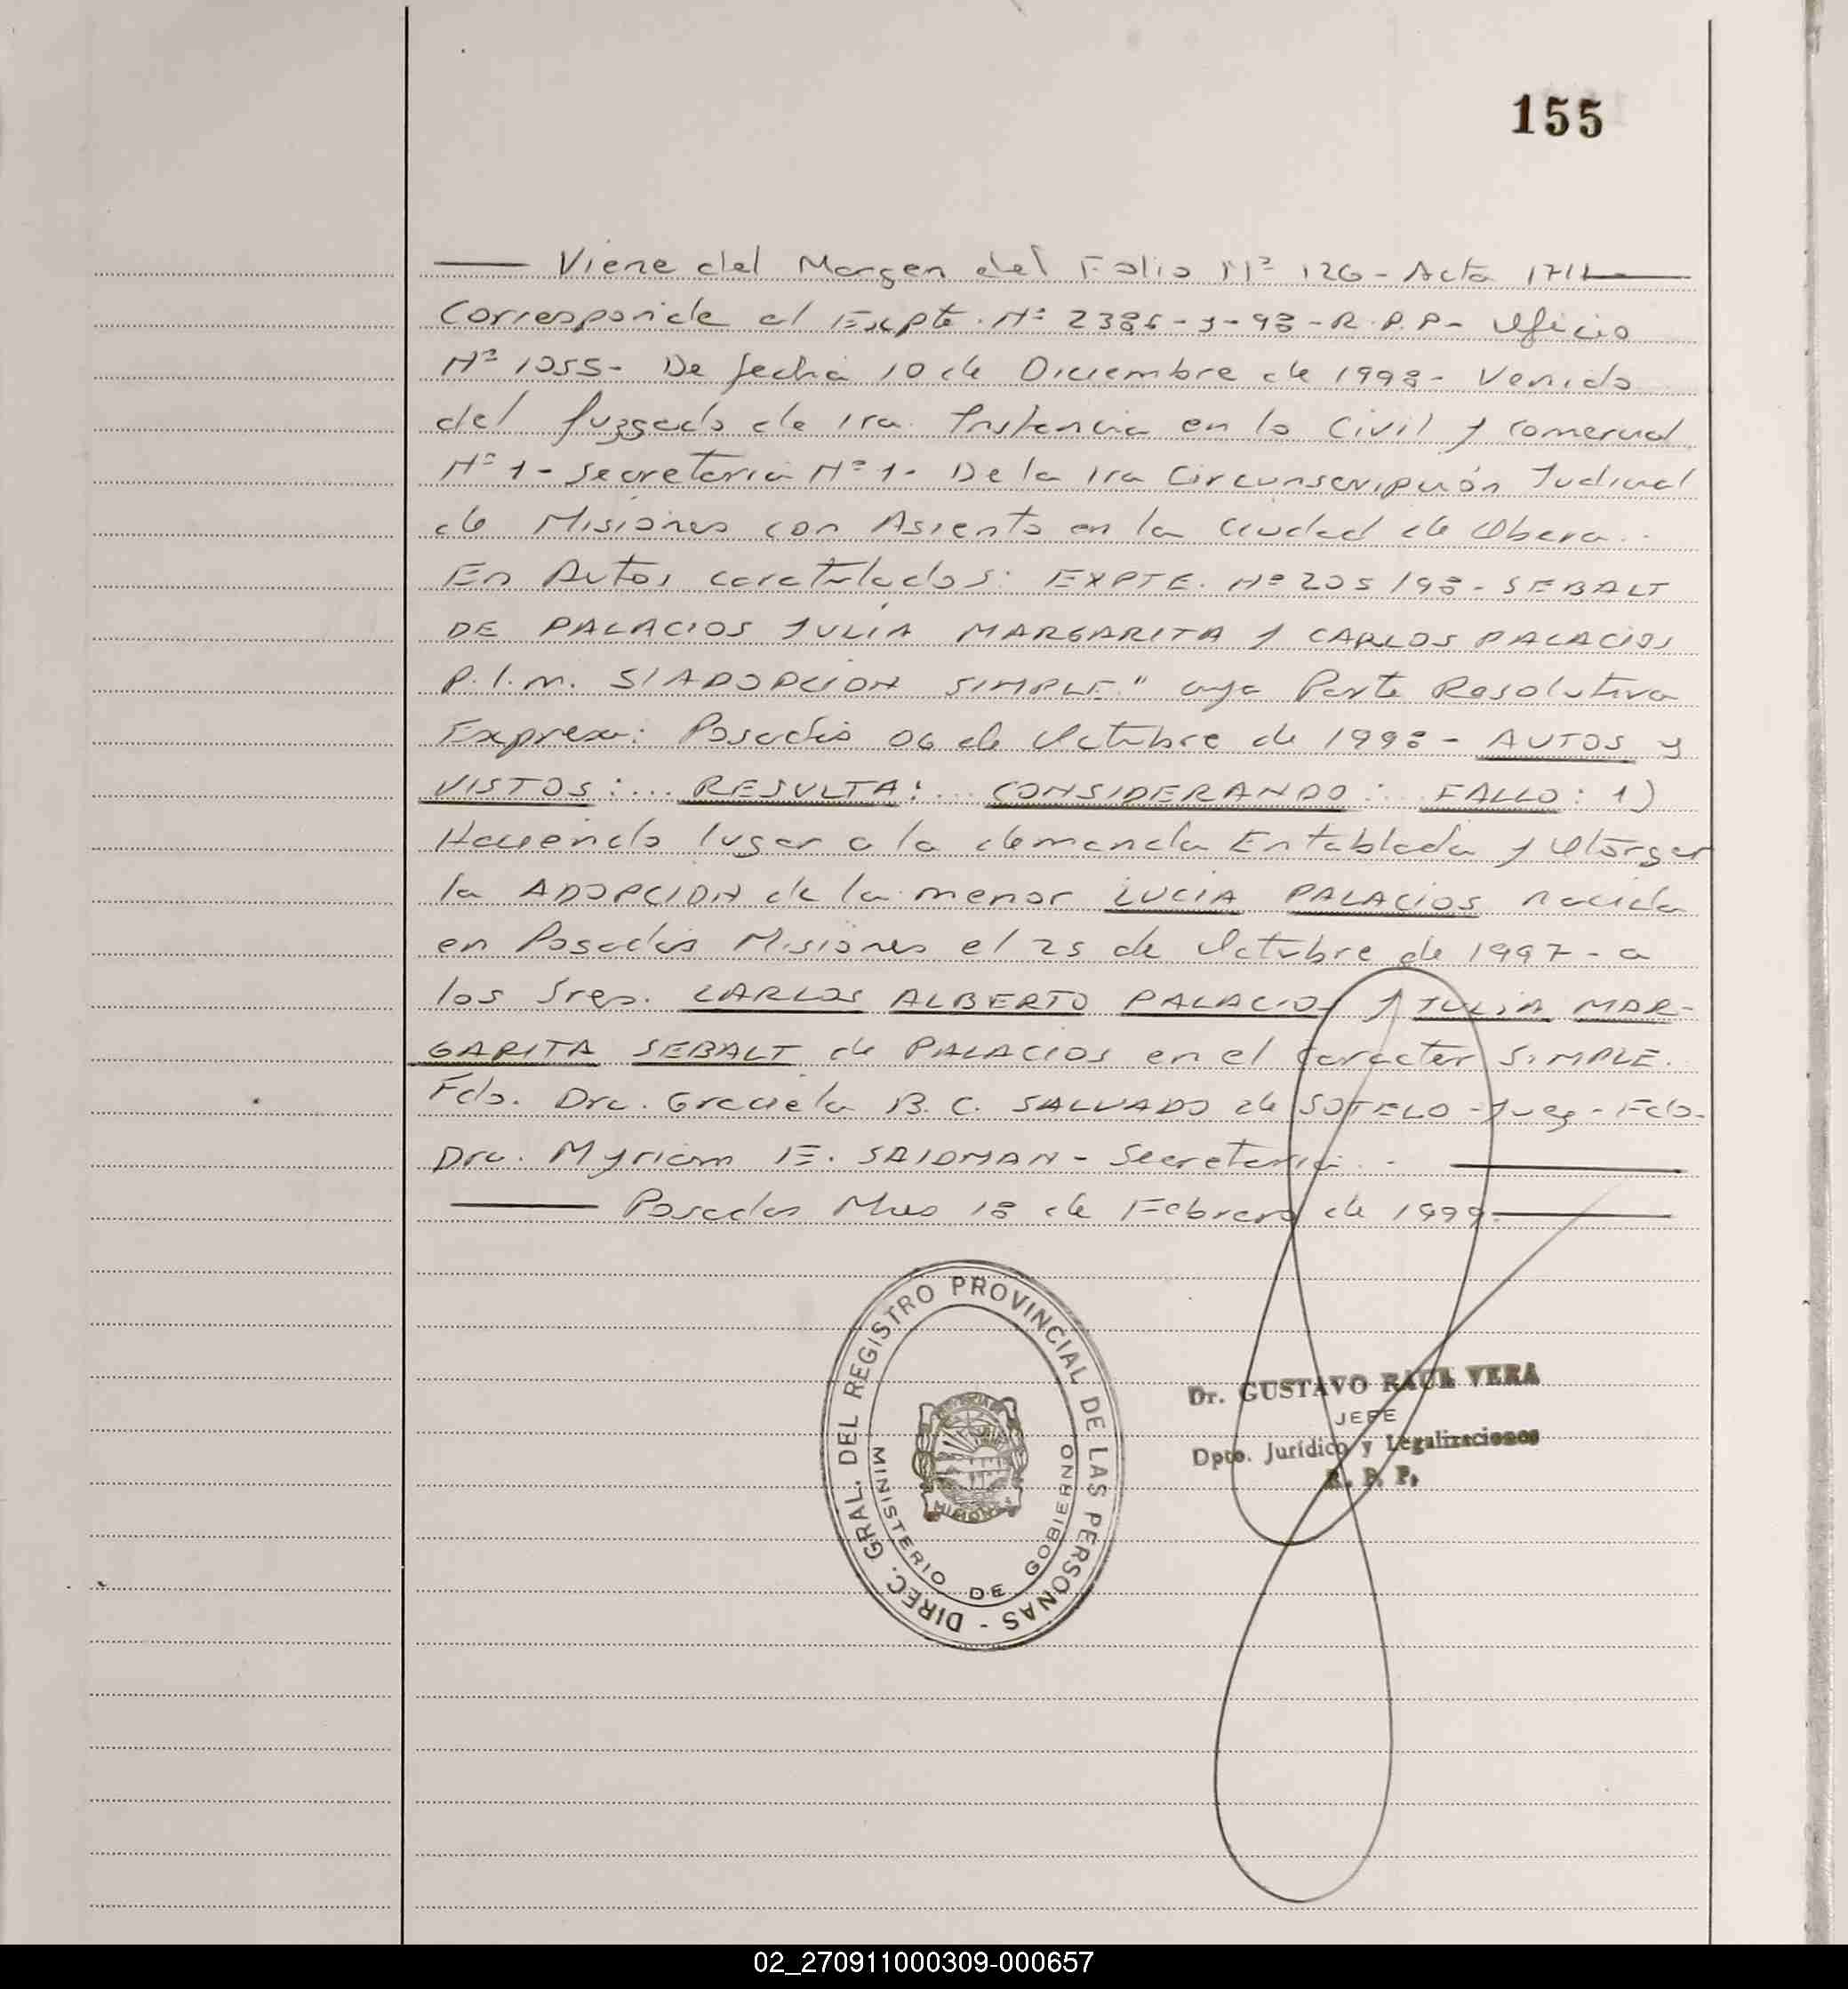 155
Viene del Margen del Folio Nº 126 - Acta 1711
Corresponde al Expte. Nº 2386-J-98-R.P.P- Oficio
Nº 1055- De fecha 10 de Diciembre de 1998- Venido
del Juzgado de 1ra. Instancia en lo Civil y Comercial
Nº 1- Secretaria Nº 1- De la 1ra Circunscripción Judicial
de Misiones con Asiento en la Ciudad de Obera..
En Autos caratulados: EXPTE. Nº 205/98- SEBALT
DE PALACIOS JULIA MARGARITA y CARLOS PALACIOS
P.l.m. S/ADOPCION SIMPLE." cuya Parte Resolutiva
Expresa: Posadas 06 de Octubre de 1998- AUTOS y
VISTOS:... RESULTA:... CONSIDERANDO:.. FALLO: 1)
Haciendo lugar a la demanda Entablada y Otorgar
la ADOPCION de la menor LUCIA PALACIOS nacida
en Posadas Misiones el 25 de Octubre de 1997- a
los Sres. CARLOS ALBERTO PALACIOS y JULIA MAR-
GARITA SEBALT de PALACIOS en el caracter SIMPLE.
Fdo. Dra. Graciela B. C. SALVADO de SOTELO -Juez- Fdo.
Dra. Myriam E. SAIDMAN- Secretaria.-
Posadas Mnes 18 de Febrero de 1999.
DIREC. GRAL. DEL REGISTRO PROVINCIAL DE LAS PERSONAS -
MINISTERIO DE GOBIERNO
MISIONES
Dr. GUSTAVO RAUL VERA
JEFE
Dpto. Jurídico y Legalizaciones
R. P. P.
02_270911000309-000657